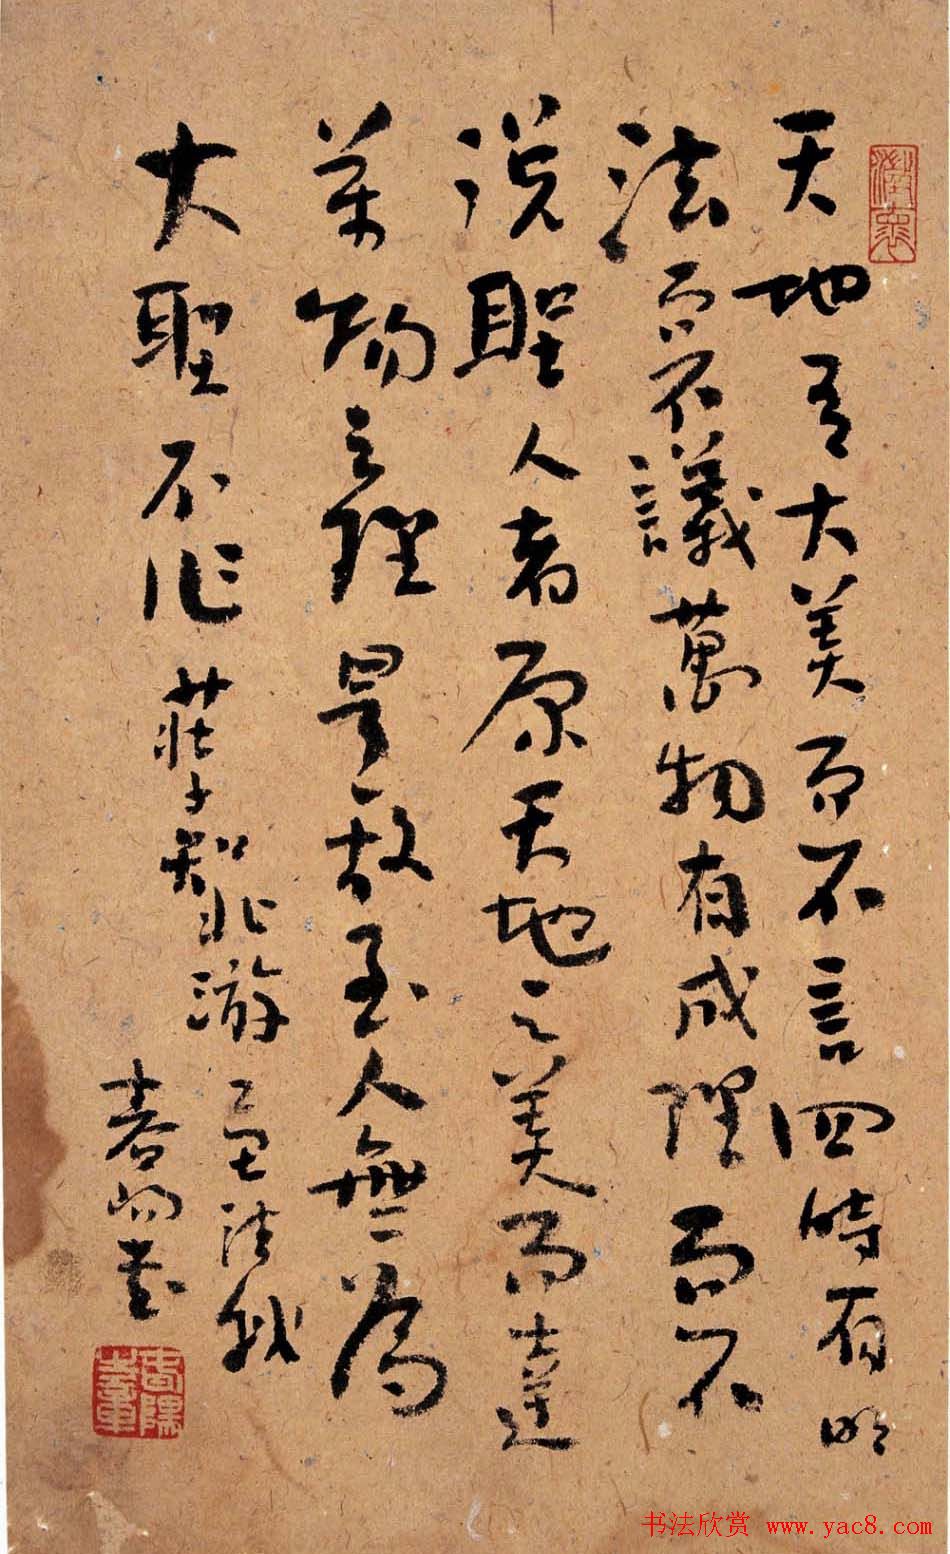 天地有大美而不言四時有明
法而不議萬物有成理而不
説聖人者原天地之美而達
萬物之理是故至人無為
大聖不作 莊子知北游
书法欣赏 www.yac8.com